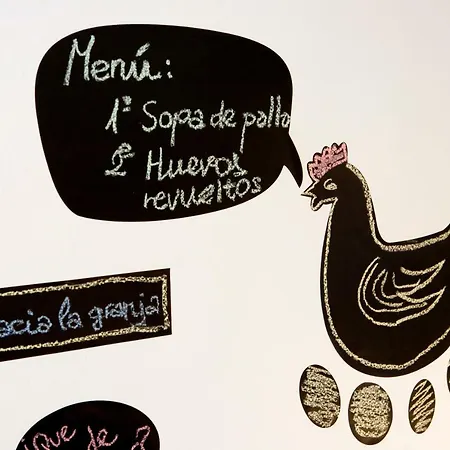 Menú:
1º Sopa de pollo
2º Huevos
revueltos
acia la granja
que de